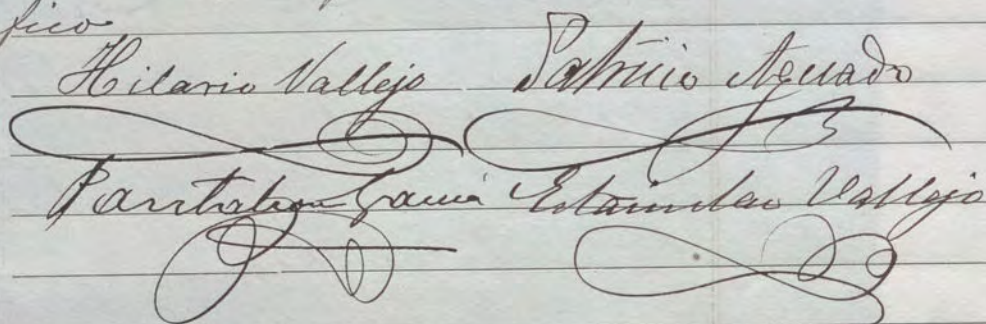 fico
Hilario Vallejo Patricio Aguado
Pantaleon Garcia Estanislao Vallejo